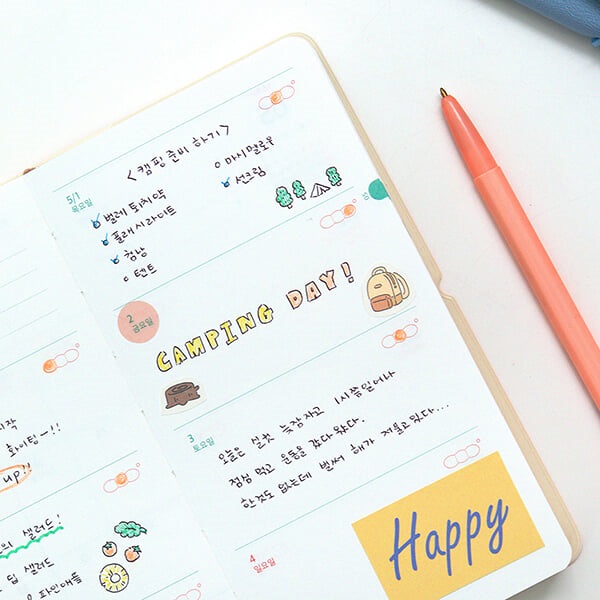 작
화이팅-!!
up!!
의 샐러드!
샐러드
o 파인애플
<캠핑 준비 하기>
5/1
목요일
벌레 퇴치약
플래시라이트
침낭
o 텐트
o 마시멜로우
선크림
2
금요일
CAMPING DAY!
3
토요일
오늘은 실컷 늦잠자고 1시쯤 일어나
점심 먹고 운동을 갔다왔다.
한것도 없는데 벌써 해가 저물고있다...
4
일요일
Happy